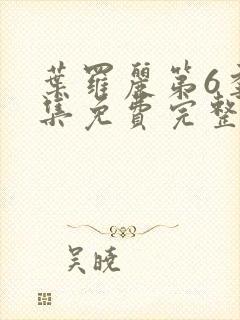 葉羅麗第6季
集免費完整
吴晓